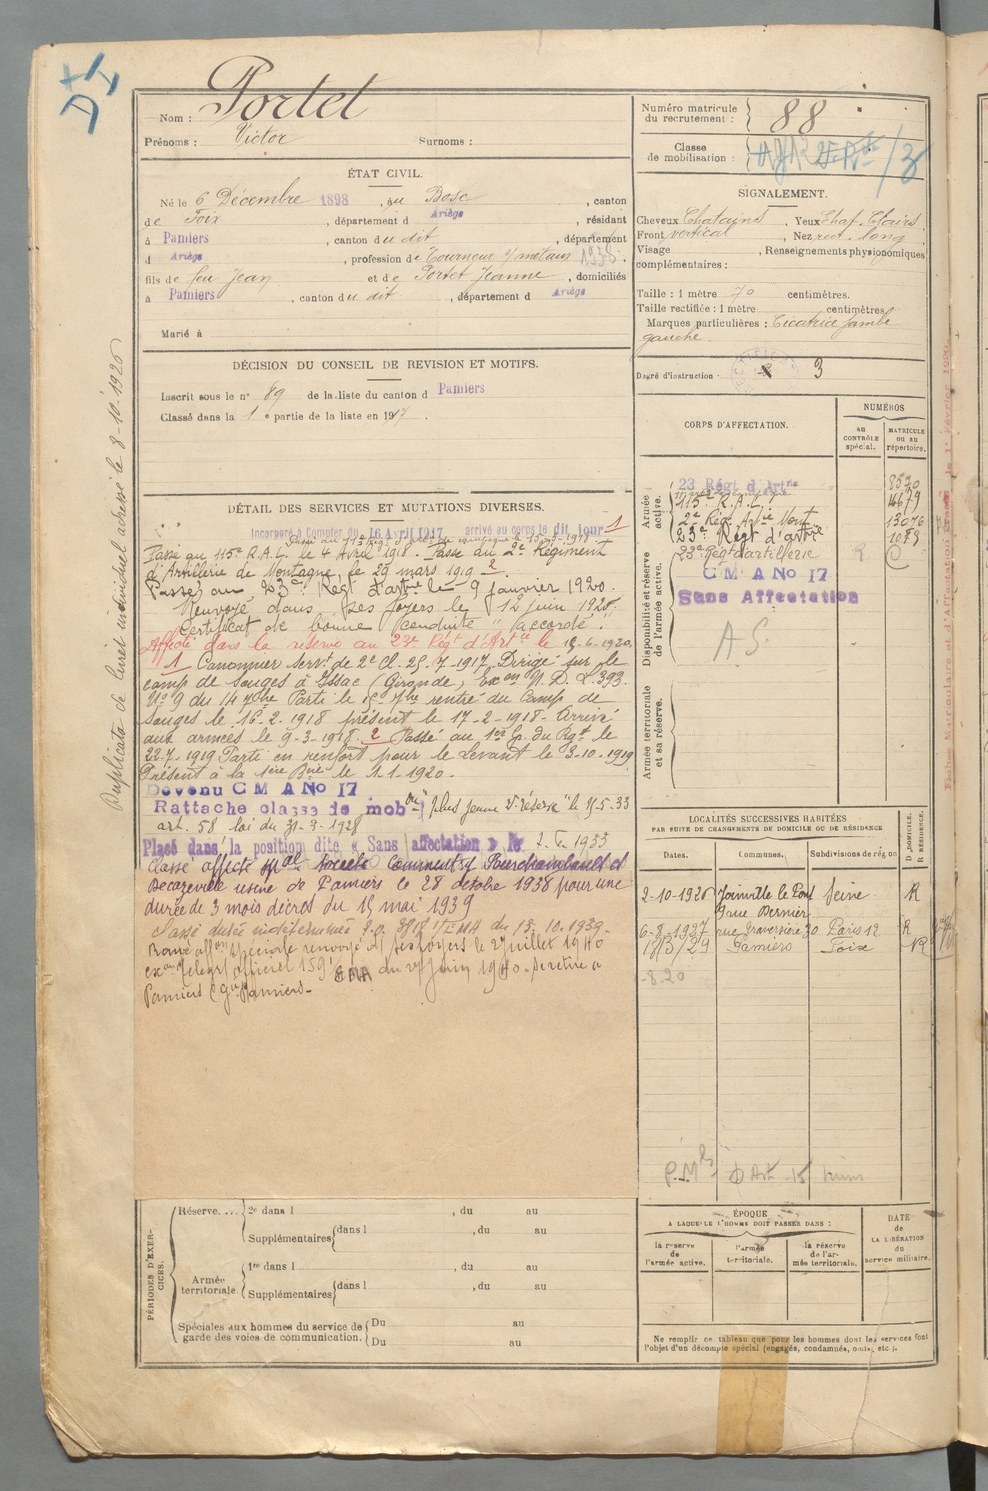 Nom : Portet
Prénoms : Victor Surnoms :
ÉTAT CIVIL.
Né le 6 Décembre 1898, au Bosc, canton
de Foix, département d Ariège, résidant
à Pamiers, canton du dit, département
d Ariège, profession de Tourneur s/ métaux 1938.
fils de feu Jean et de Portet Jeanne, domiciliés
à Pamiers, canton du dit, département d Ariège
Marié à
DÉCISION DU CONSEIL DE REVISION ET MOTIFS.
Inscrit sous le n° 89 de la liste du canton d Pamiers
Classé dans la 1 e partie de la liste en 1917.
DÉTAIL DES SERVICES ET MUTATIONS DIVERSES.
Incorporé à Compter du 16 Avril 1917 arrivé au corps le dit jour 1
Passé au 115e R.A.L. le 4 Avril 1918. Passé au 2e Régiment
d'Artillerie de Montagne, le 29 mars 1919 2
Passé au 23e Régt d'artie le 9 janvier 1920.
Renvoyé dans ses foyers le 12 juin 1920,
Certificat de bonne conduite "accordé"
Affecté dans la réserve au 23e Régt d'Artie le 12-6-1920.
1 Canonnier Servt de 2e Cl. 25-7-1917 Dirigé sur le
camp de Souges à Issac (Gironde) Exon N.D. 2393
N° 9 du 14 9bre Parti le 15 9bre rentré du Camp de
Souges le 16-2-1918 présent le 17-2-1918. Arrivé
aux armées le 9-3-1918. 2 Passé au 1er Gp. du Rgt le
22-7-1919 Parti en renfort pour le Levant le 3-10-1919
Présent à la 1ère Brie le 1-1-1920.
Devenu C M A No 17
Rattache classe de mob "plus jeune 2e réserve" le 15-5-33
art. 58 loi du 31-3-1928
Placé dans la position dite « Sans affectation » le 1933
Classé affecté spal Commentry Fourchambault et
Decazeville usine de Pamiers le 28 octobre 1938 pour une
durée de 3 mois décret du 15 mai 1939
Classé durée indéterminée du 13.10.1939.
Rayé affon spéciale renvoyé ds ses foyers le 2 juillet 1940
exon télégr officiel 159 EMA du 27 juin 1940. Se retire à
Pamiers Pamiers-
Duplicata de livret individuel adressé le 8-10-1926
PÉRIODES D'EXERCICES.
Réserve.... 2e dans l , du au
Supplémentaires dans l , du au
Armée territoriale. 1re dans l , du au
Supplémentaires dans l , du au
Spéciales aux hommes du service de garde des voies de communication. Du au
Du au
Numéro matricule du recrutement : 88
Classe de mobilisation :
SIGNALEMENT.
Cheveux Chatains, Yeux Chat. Clairs
Front vertical, Nez rect. long
Visage , Renseignements physionomiques
complémentaires :
Taille : 1 mètre 70 centimètres.
Taille rectifiée : 1 mètre centimètres.
Marques particulières : Cicatrice jambe
gauche
Degré d'instruction 3
CORPS D'AFFECTATION.
NUMÉROS
au CONTRÔLE spécial.
MATRICULE ou au répertoire.
Armée active.
23 Régt d'Artie 8520
115e R.A.L. 16679
2e Rég. Artie Mont 13076
23e Régt d'artie 1073
Disponibilité et réserve de l'armée active.
23e Régt d'artillerie R C
C M A No 17
Sans Affectation
A.S.
Armée territoriale et sa réserve.
LOCALITÉS SUCCESSIVES HABITÉES
PAR SUITE DE CHANGEMENTS DE DOMICILE OU DE RÉSIDENCE
Dates. Communes. Subdivisions de région D DOMICILE. R RÉSIDENCE.
2-10-1926 Joinville le Pont Seine R
6-8-1927 rue Traversière 30 Paris 12 R
18/3/29 Pamiers Foix R
ÉPOQUE
A LAQUELLE L'HOMME DOIT PASSER DANS :
la réserve de l'armée active.
l'armée territoriale.
la réserve de l'armée territoriale.
DATE de LA LIBÉRATION du service militaire.
Ne remplir ce tableau que pour les hommes dont les services font
l'objet d'un décompte spécial (engagés, condamnés, omis, etc.).